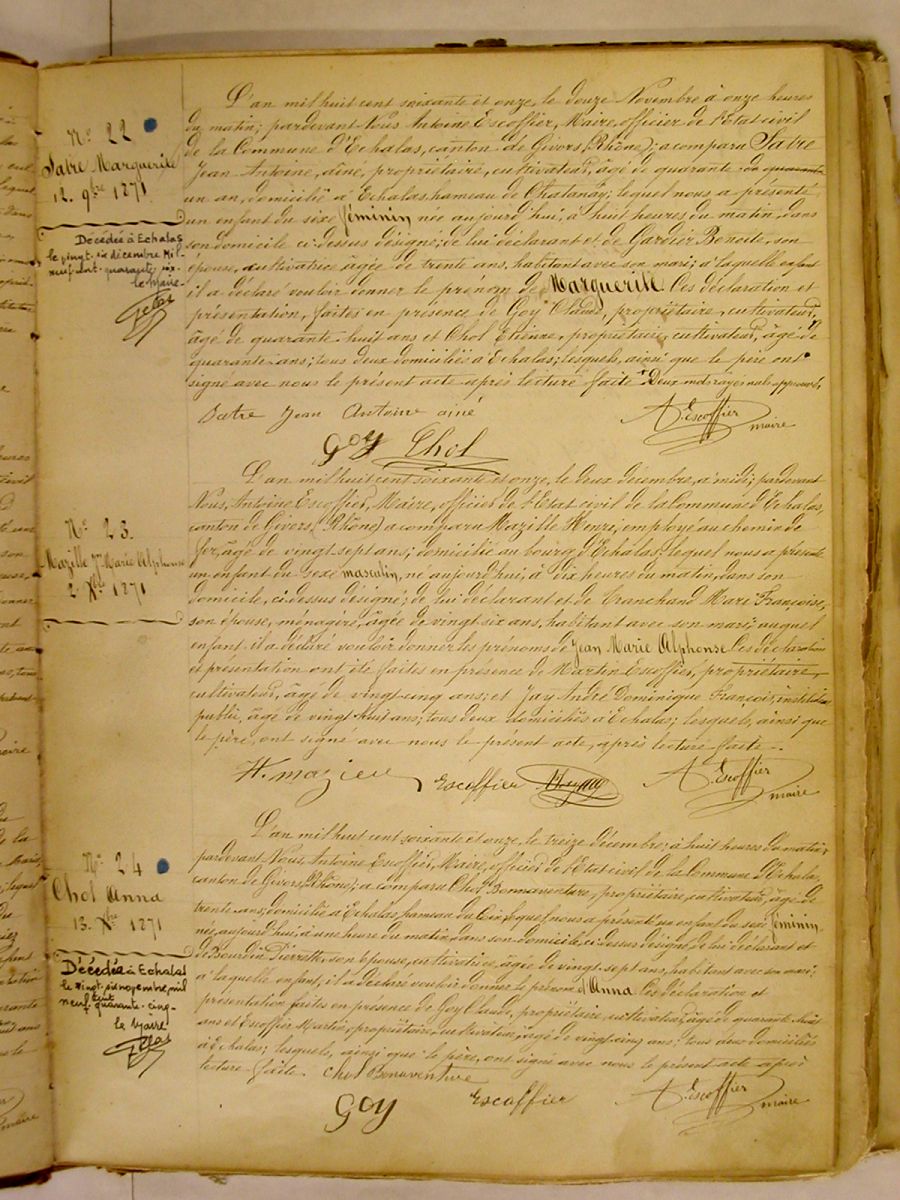 N° 22
Satre Marguerite
12. 9bre 1871
Décédée à Echalas
le vingt-six décembre mil-
neuf-cent-quarante-six
le Maire-
L'an mil huit cent soixante et onze, le douze Novembre à onze heures
du matin; pardevant Nous Antoine Escoffier, Maire, officier de l'Etat civil
de la Commune d'Echalas, canton de Givors (Rhône); a comparu Satre
Jean Antoine, aîné, propriétaire, cultivateur, âgé de quarante de quarante
un an, domicilié à Echalas, hameau de ; lequel nous a présenté
un enfant du sexe féminin née aujourd'hui, à huit heures du matin, dans
son domicile ci-dessus désigné; de lui déclarant et de Gardier Benoite, son
épouse, cultivatrice, âgée de trente ans, habitant avec son mari; à laquelle enfant
il a déclaré vouloir donner le prénom de Marguerite. Ces déclaration et
présentation, faites en présence de Goy Claude, propriétaire, cultivateur,
âgé de quarante huit ans et Chol Etienne, propriétaire, cultivateur, âgé de
quarante ans; tous deux domiciliés à Echalas; lesquels, ainsi que le père ont
signé avec nous le présent acte après lecture faite. Deux mots rayés nuls approuvés.
Satre Jean Antoine ainé
A. Escoffier
maire
Goy Chol
N° 23.
Mazille Jn Marie Alphonse
2. Xbre 1871
L'an mil huit cent soixante et onze, le deux décembre, à midi; pardevant
Nous, Antoine Escoffier, Maire, officier de l'Etat civil de la Commune d'Echalas,
canton de Givors (Rhône) a comparu Mazille Henri, employé au chemin de
fer, âgé de vingt sept ans; domicilié au bourg d'Echalas; lequel nous a présenté
un enfant du sexe masculin, né aujourd'hui, à dix heures du matin, dans son
domicile, ci-dessus désigné; de lui déclarant et de Tranchand Marie Françoise,
son épouse, ménagère, âgée de vingt six ans, habitant avec son mari; auquel
enfant il a déclaré vouloir donner les prénoms de Jean Marie Alphonse. Ces déclaration
et présentation ont été faites en présence de Martin Escoffier, propriétaire,
cultivateur, âgé de vingt-cinq ans; et Jay André Dominique François, instituteur
public, âgé de vingt huit ans; tous deux domiciliés à Echalas; lesquels, ainsi que
le père, ont signé avec nous le présent acte, après lecture faite.
Escoffier
A. Escoffier
maire
N° 24
Chol Anna
13. Xbre 1871
Décédée à Echalas
le vingt-six novembre mil
neuf cent quarante-cinq-
le Maire
L'an mil huit cent soixante et onze, le treize décembre, à huit heures du matin,
pardevant Nous, Antoine Escoffier, Maire, officier de l'Etat civil de la Commune d'Echalas,
canton de Givors (Rhône); a comparu Chol Bonnaventure, propriétaire, cultivateur, âgé de
trente ans, domicilié à Echalas, hameau du ; lequel nous a présenté un enfant du sexe féminin
née, aujourd'hui, à une heure du matin, dans son domicile, ci-dessus désigné; de lui déclarant et
de Bourdin Pierrette, son épouse, cultivatrice, âgée de vingt sept ans, habitant avec son mari;
à laquelle enfant, il a déclaré vouloir donner le prénom d'Anna. Ces déclaration et
présentation faites en présence de Goy Claude, propriétaire, cultivateur, âgé de quarante huit
ans et Escoffier Martin, propriétaire, cultivateur, âgé de vingt cinq ans; tous deux domiciliés
à Echalas; lesquels, ainsi que le père, ont signé avec nous le présent acte après
lecture faite. Chol Bonaventure
Goy
Escoffier
A. Escoffier
maire